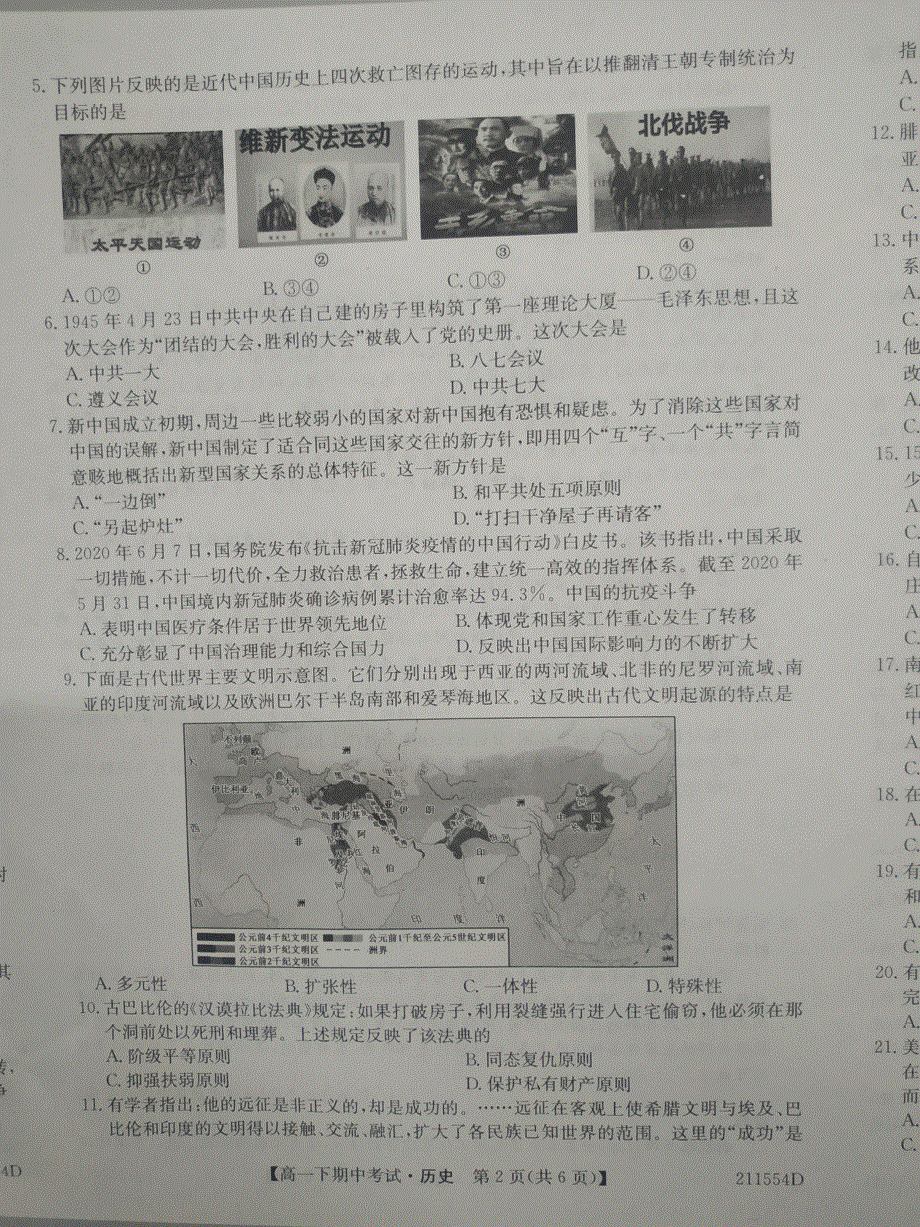 5. 下列图片反映的是近代中国历史上四次救亡图存的运动,其中旨在以推翻清王朝专制统治为
目标的是
太平天国运动
维新变法运动
北伐战争
① ② ③ ④
A. ①② B. ③④ C. ①③ D. ②④
6. 1945 年 4 月 23 日中共中央在自己建的房子里构筑了第一座理论大厦——毛泽东思想,且这
次大会作为“团结的大会,胜利的大会”被载入了党的史册。这次大会是
A. 中共一大 B. 八七会议
C. 遵义会议 D. 中共七大
7. 新中国成立初期,周边一些比较弱小的国家对新中国抱有恐惧和疑虑。为了消除这些国家对
中国的误解,新中国制定了适合同这些国家交往的新方针,即用四个“互”字、一个“共”字言简
意赅地概括出新型国家关系的总体特征。这一新方针是
A. “一边倒” B. 和平共处五项原则
C. “另起炉灶” D. “打扫干净屋子再请客”
8. 2020 年 6 月 7 日,国务院发布《抗击新冠肺炎疫情的中国行动》白皮书。该书指出,中国采取
一切措施,不计一切代价,全力救治患者,拯救生命,建立统一高效的指挥体系。截至 2020 年
5 月 31 日,中国境内新冠肺炎确诊病例累计治愈率达 94.3%。中国的抗疫斗争
A. 表明中国医疗条件居于世界领先地位 B. 体现党和国家工作重心发生了转移
C. 充分彰显了中国治理能力和综合国力 D. 反映出中国国际影响力的不断扩大
9. 下面是古代世界主要文明示意图。它们分别出现于西亚的两河流域、北非的尼罗河流域、南
亚的印度河流域以及欧洲巴尔干半岛南部和爱琴海地区。这反映出古代文明起源的特点是
不列颠
欧
洲
高卢
伊比利亚
意大利
黑海
腓尼基
亚
伊朗
洲
非
洲
阿拉伯
印度
中国
太平洋
印度洋
大洋洲
公元前4千纪文明区 公元前1千纪至公元5世纪文明区
公元前3千纪文明区 洲界
公元前2千纪文明区
A. 多元性 B. 扩张性 C. 一体性 D. 特殊性
10. 古巴比伦的《汉谟拉比法典》规定:如果打破房子,利用裂缝强行进入住宅偷窃,他必须在那
个洞前处以死刑和埋葬。上述规定反映了该法典的
A. 阶级平等原则 B. 同态复仇原则
C. 抑强扶弱原则 D. 保护私有财产原则
11. 有学者指出:他的远征是非正义的,却是成功的。……远征在客观上使希腊文明与埃及、巴
比伦和印度的文明得以接触、交流、融汇,扩大了各民族已知世界的范围。这里的“成功”是
【高一下期中考试·历史 第 2 页(共 6 页)】 211554D
4D
指
A.
C.
12. 腓
亚
A.
C.
13. 中
系
A.
C.
14. 他
改
A.
C.
15. 15
少
A.
C.
16. 自
庄
A.
C.
17. 南
红
中
A.
C.
18. 在
A.
C.
19. 有
和
A.
C.
20. 有
完
A.
C.
21. 美
在
而
A.
C.